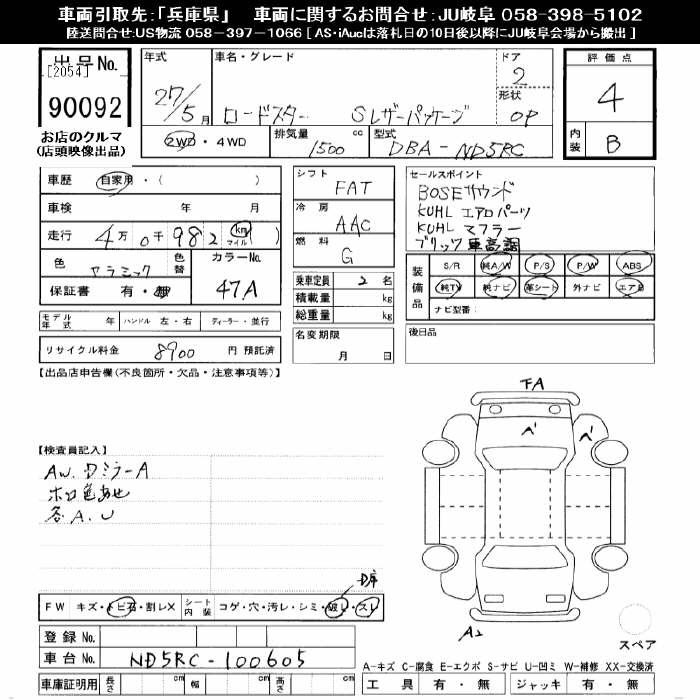 車両引取先:「兵庫県」 車両に関するお問合せ:JU岐阜 058-398-5102
陸送問合せ:US物流 058-397-1066 [ AS・iAucは落札日の10日後以降にJU岐阜会場から搬出 ]
出品No.
[2054]
90092
お店のクルマ
(店頭映像出品)
年式
27/5月
車名・グレード
ロードスター Sレザーパッケージ
ドア
2
形状
OP
2WD・4WD
排気量 1500 cc
型式 DBA-ND5RC
評価点
4
内装 B
車歴 自家用・( )
車検 年 月
走行 4万0千982 km マイル ( )
色 セラミック 色替 カラーNo. 47A
保証書 有・無
モデル年式 年 ハンドル 左・右 ディーラー・並行
リサイクル料金 8900 円 預託済
シフト FAT
冷房 AAC
燃料 G
乗車定員 2 名
積載量 kg
総重量 kg
名変期限
月 日
セールスポイント
BOSEサウンド
KUHL エアロパーツ
KUHL マフラー
ブリッツ車高調
装備品 S/R 純A/W P/S P/W ABS
純TV 純ナビ 革シート 外ナビ エアB
ナビ型番:
後日品
【出品店申告欄(不良箇所・欠品・注意事項等)】
【検査員記入】
AW. Dミラー A
ホロ色あせ
各A.U
FA
ペ
ペ
A2
スペア
D席
FW キズ・トビ石・割レX シート内装 コゲ・穴・汚レ・シミ・破レ・スレ
登録No.
車台No. ND5RC-100605
車庫証明用 長さ cm 幅 cm 高さ cm
A-キズ C-腐食 E-エクボ S-サビ U-凹ミ W-補修 XX-交換済
工具 有・無 ジャッキ 有・無